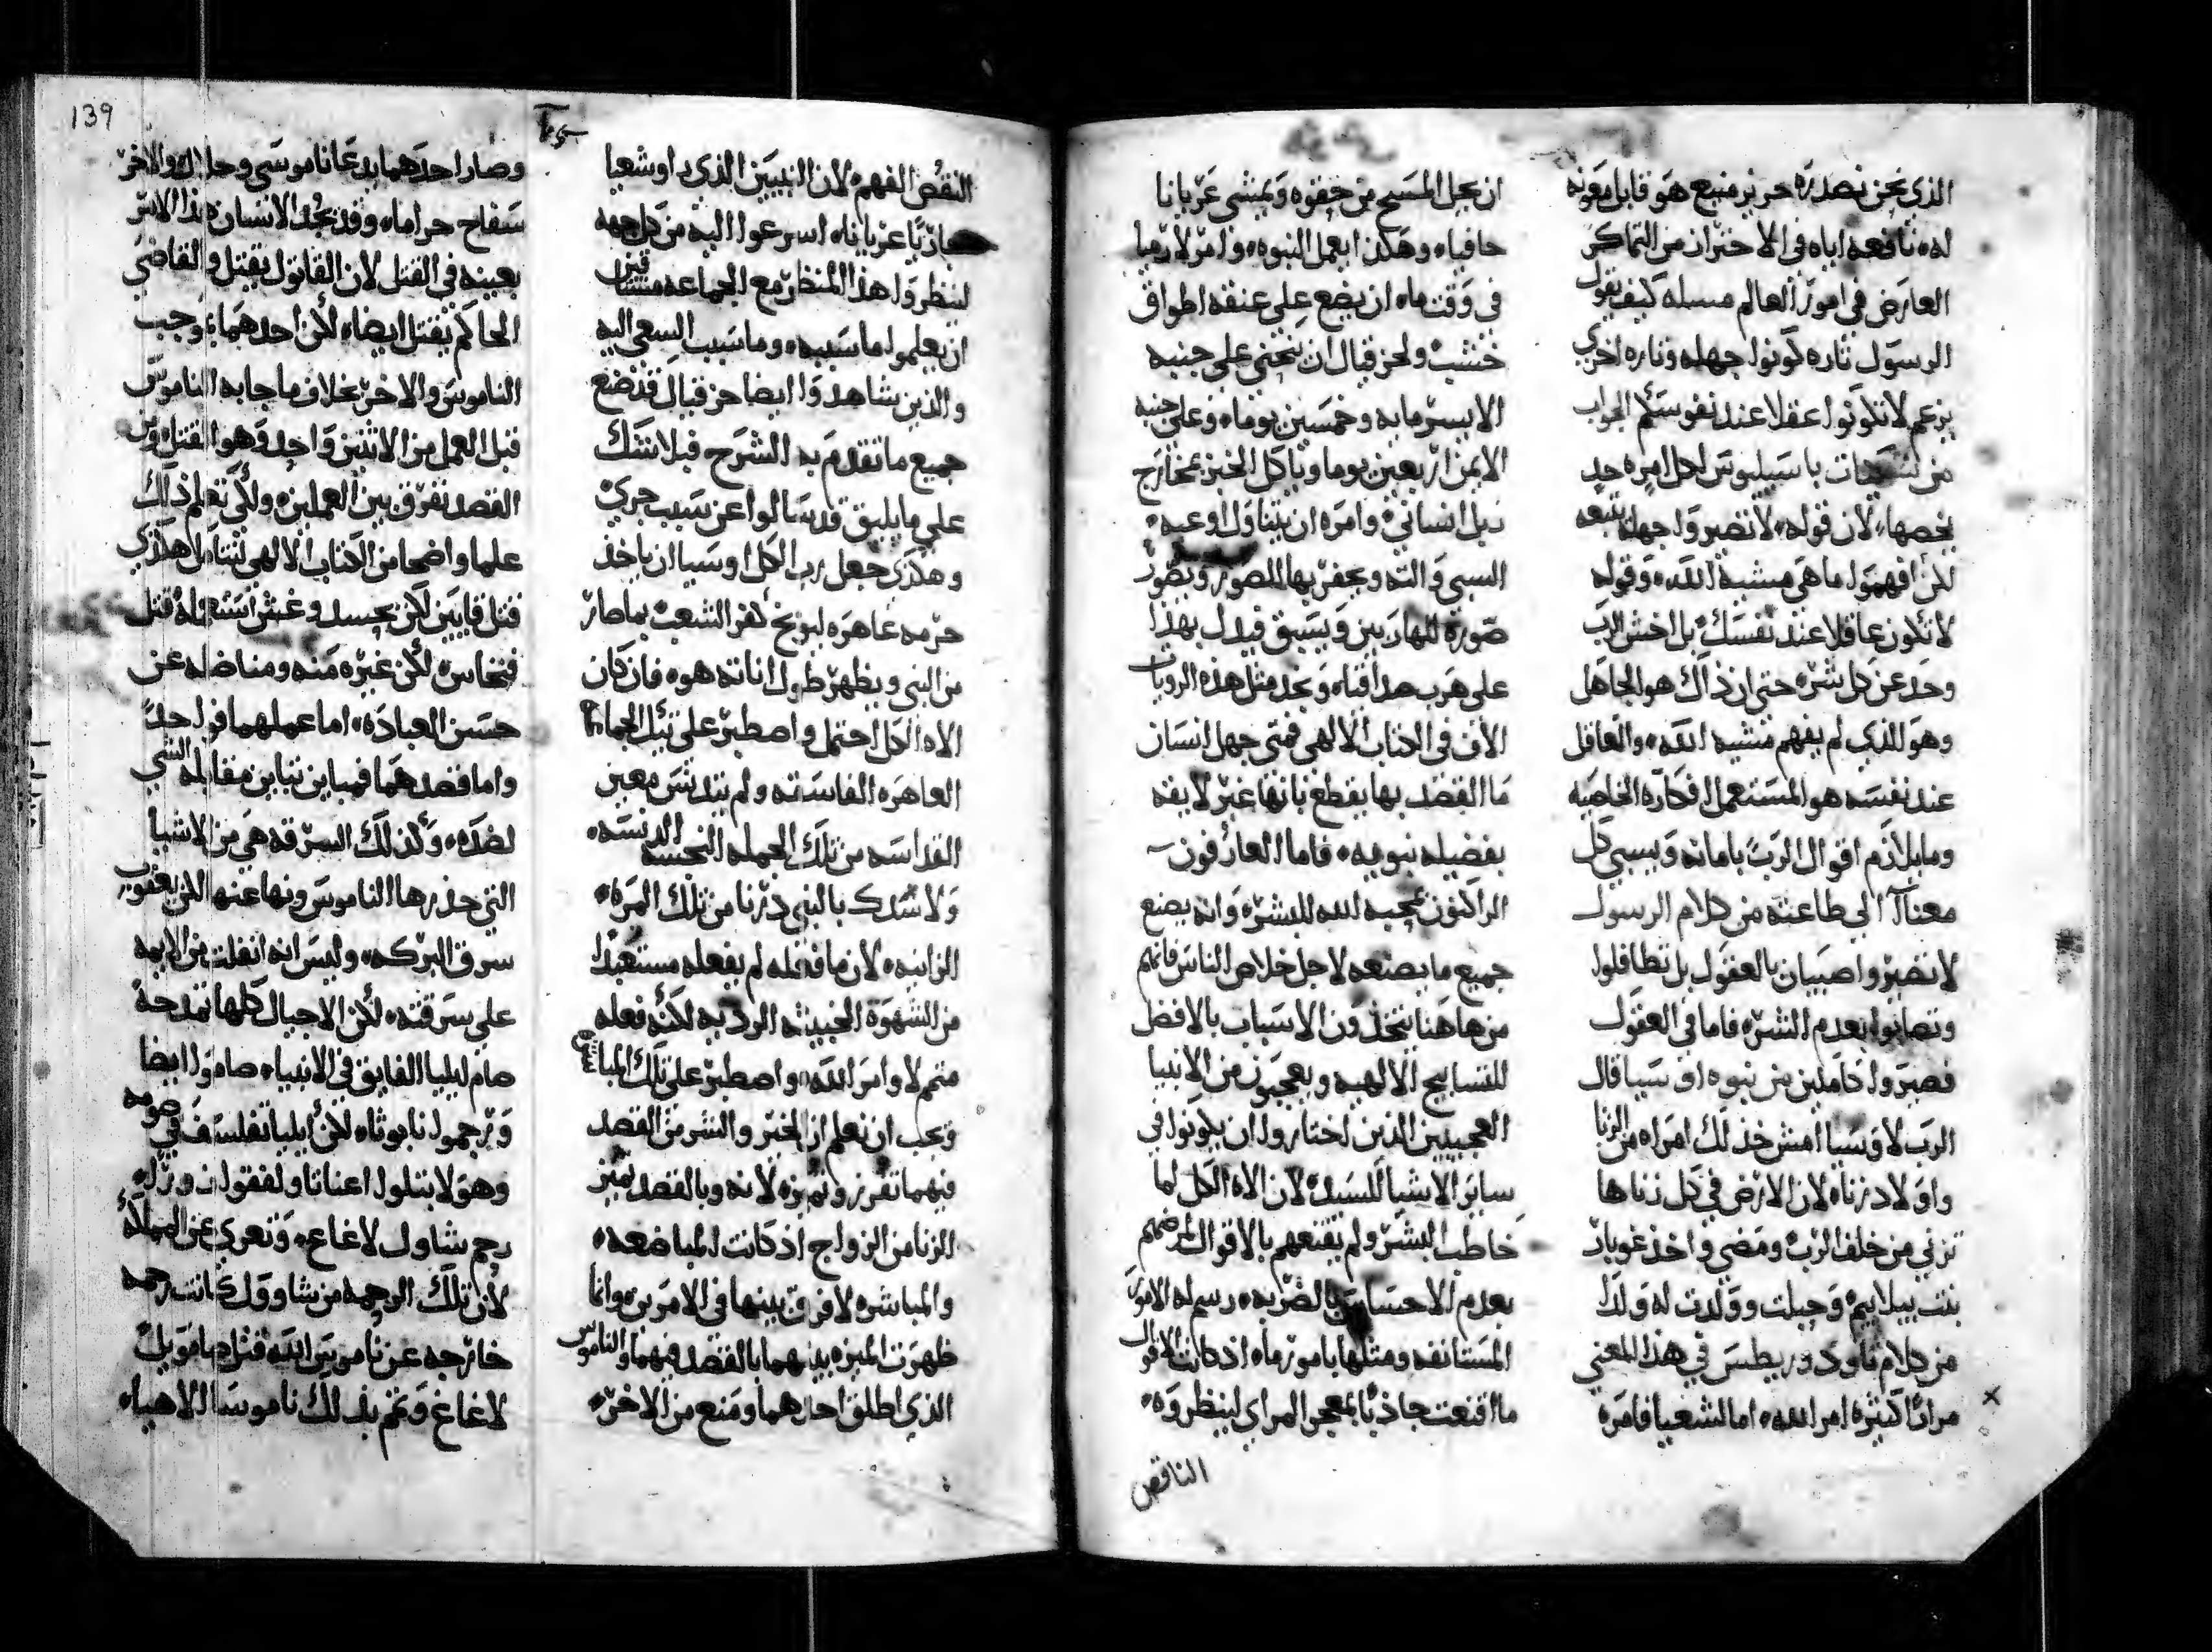 الذي نحن نصدره حريز منيع هو قابل معونه
له، نافعه اياه في الاحتزان من التماكر
العارض في امور العالم مسله كيف يقول
الرسول تاره كونوا جهله وتاره اخري
يزعم لا تكونوا عقلا عند نفوسكم الجواب
من باسيليوس لكل امره حد
يخصها، لان قوله، لا تصيروا جهله يتبعه
لكن افهموا ما هي مشيه الله، وقوله
لا تكون عاقلا عند نفسك بل اخش الرب
وحد عن كل شره حتى ان ذاك هو الجاهل
وهو الذي لم يفهم مشيه الله، والعاقل
عند نفسه هو المستعمل افكاره الخاصيه
وما يلازم اقوال الرب بامانه ويسبي كل
معنا الي طاعته من كلام الرسول
لا تصيروا صبيان بالعقول بل تطافلوا
وتصابوا بعدم الشره فاما في العقول
فصيروا كاملين من نبوه اوسيا قال
الرب لاوسيا امش خذ لك امراه من الزنا
واولاد زناه لان الارض في كل زناها
تزني من خلف الرب ومضي واخذ غوباد
بنت بيلاييم وحبلت وولدت له ولدا
من كلام ثاودوريطس في هذا المعني
مرارا كثيره امر الله، اما لشعيا فامره
ان يحل المسح من حقوه ويمشي عريانا
حافيا، وهكذا يعمل النبوه، وامر لارميا
في وقت ما، ان يضع علي عنقه اطواق
خشب ولحزقيال ان يتحني علي جنبه
الايسر مايه وخمسين يوما، وعلي جنبه
الايمن اربعين يوما وياكل الخبز بمخارج
زبل انساني وامره ان يتناول اوعيه
السبي والته ويحفر بها للصور ويصور
صوره للهاربين ويسبق فيدل بهذا
علي هرب صداقيا، ونجد مثل هذه الرويات
الاف في الكتاب الالهي فمتي جهل انسان
ما القصد بها يقطع بانها غير لايقه
بفضيله نبويه، فاما العارفون
الراكنون بمحبه الله للبشر، وانه يصنع
جميع ما يصنعه لاجل خلاص الناس فانهم
من هاهنا يتخذون الاسباب بالافضل
للتسابيح الالهيه ويعجبون من الانبيا
العجيبين الذين اختاروا ان يكونوا في
ساير الاشيا للسيد، لان الاه الكل لما
خاطب البشر ولم يقنعهم بالاقوال لمرضهم
بعدم الاحساس رسم له الامور
المستانفه ومثلها بامور ما، اذ كانت الاقوال
ما اقنعت جاذبا بمعجز المراي لينظروه
الناقص
النقص الفهم، لان النبيين الذي راو شعيا
عريانا، اسرعوا اليه من كل جهه
لينظروا هذا المنظر مع الجماعه
ان يعلموا ما سببه، وما سبب السعي اليه
والذين شاهدوا ايضا حزقيال قد نضع
جميع ما تقدم به الشرح فبلا شك
علي ما يليق قد سالوا عن سبب جري
وهكذي جعل رب الكل اوسيا ان ياخذ
حرمه عاهره ليوبخ كفر الشعب بما صار
من النبي ويظهر طول اناته هو، فان كان
الاه الكل احتمل واصطبر علي تيك الجماعه
العاهره الفاسقه ولم يتدنس معين
القداسه من تلك الجمله النجسه الدنسه
ولا شك بالنبي درنا من تلك المراه
الزانيه، لان ما فعله لم يفعله مستعبدا
من الشهوه الخبيثه الرديه لكنه فعله
متمم لاوامر الله، واصطبر علي تلك المباشره
ويجب ان نعلم ان الخير والشر من القصد
فيهما تفرز وتميزه لانه وبالقصد يميز
الزنا من الزواج اذ كانت المباضعه
والمباشره لا فرق بينها في الامرين، وانما
ظهرت الميزه بينهما بالقصد فيهما والناموس
الذي اطلق احدهما ومنع من الاخر
وصار احدهما يدعا ناموسي وحلال، والاخر
سفاح حراما، وقد نجد الانسان هذا الامر
بعينه في القتل لان القاتول يقتل والقاضي
الحاكم يقتل ايضا، لكن احدهما بوجب
الناموس والاخر بخلاف ما جابه الناموس
قبل العمل من الاثنين واحد وهو القتل ومن
القصد نفرق بين العملين، ولكي تعلم ذلك
علما واضحا من الكتاب الالهي تتامل هكذي
قتل قايين لكن بحسد وغش استعمله قتل
فنحاس، لكن غيره منه ومناضله عن
حسن العباده، اما عملهما فواحد
واما قصدهما فمباين تباين مقابله الشي
لضده، وكذلك السرقه هي من الاشيا
التي حذرها الناموس ونها عنها الان يعقوب
سرق البركه، وليس انه انفلت من الايمه
علي سرقته، لكن الاجيال كلها تمدحه
صام ايليا الفايق في الانبيا، صاموا ايضا
ورجموا نابوثا، لكن ايليا تفلسف في صومه
وهولا يتلوا اعناتا ولفقوا زور
رحم شاول لاغاغ، وتعري عن المملكه
لان تلك الرحمه من شاوول كانت رحمه
خارجه عن ناموس الله قتل صاموييل
لاغاغ وتمم بذلك ناموسا الاهيا،
139